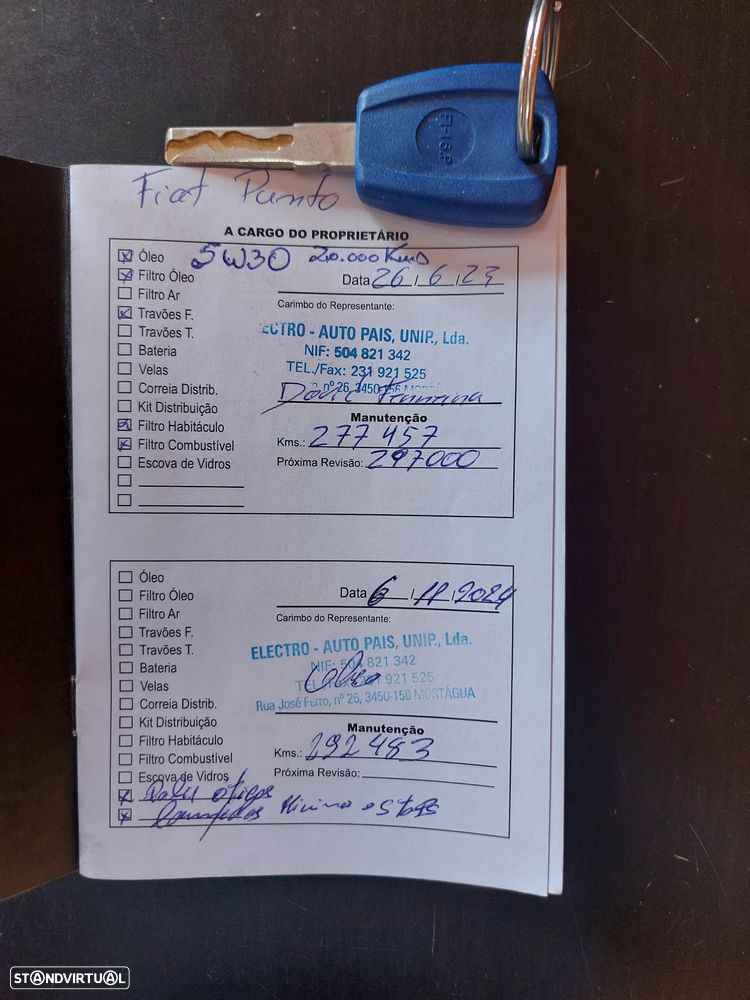 FI-16.P
Fiat Punto
A CARGO DO PROPRIETÁRIO
Óleo 5W30 20.000 Kms
Filtro Óleo
Data 26/6/23
Filtro Ar
Carimbo do Representante:
Travões F.
Travões T.
Bateria
Velas
Correia Distrib.
Kit Distribuição
Filtro Habitáculo
Filtro Combustível
Escova de Vidros
ECTRO - AUTO PAIS, UNIP., Lda.
NIF: 504 821 342
TEL./Fax: 231 921 525
nº 26, 3450-156 MORTÁ
Manutenção
Kms.: 277457
Próxima Revisão: 297000
Óleo
Filtro Óleo
Filtro Ar
Travões F.
Travões T.
Bateria
Velas
Correia Distrib.
Kit Distribuição
Filtro Habitáculo
Filtro Combustível
Escova de Vidros
Data 6/11/2024
Carimbo do Representante:
ELECTRO - AUTO PAIS, UNIP., Lda.
NIF: 504 821 342
921 525
Rua José Furro, nº 26, 3450-156 MORTÁGUA
Manutenção
Kms.: 292483
Próxima Revisão:
STANDVIRTUAL